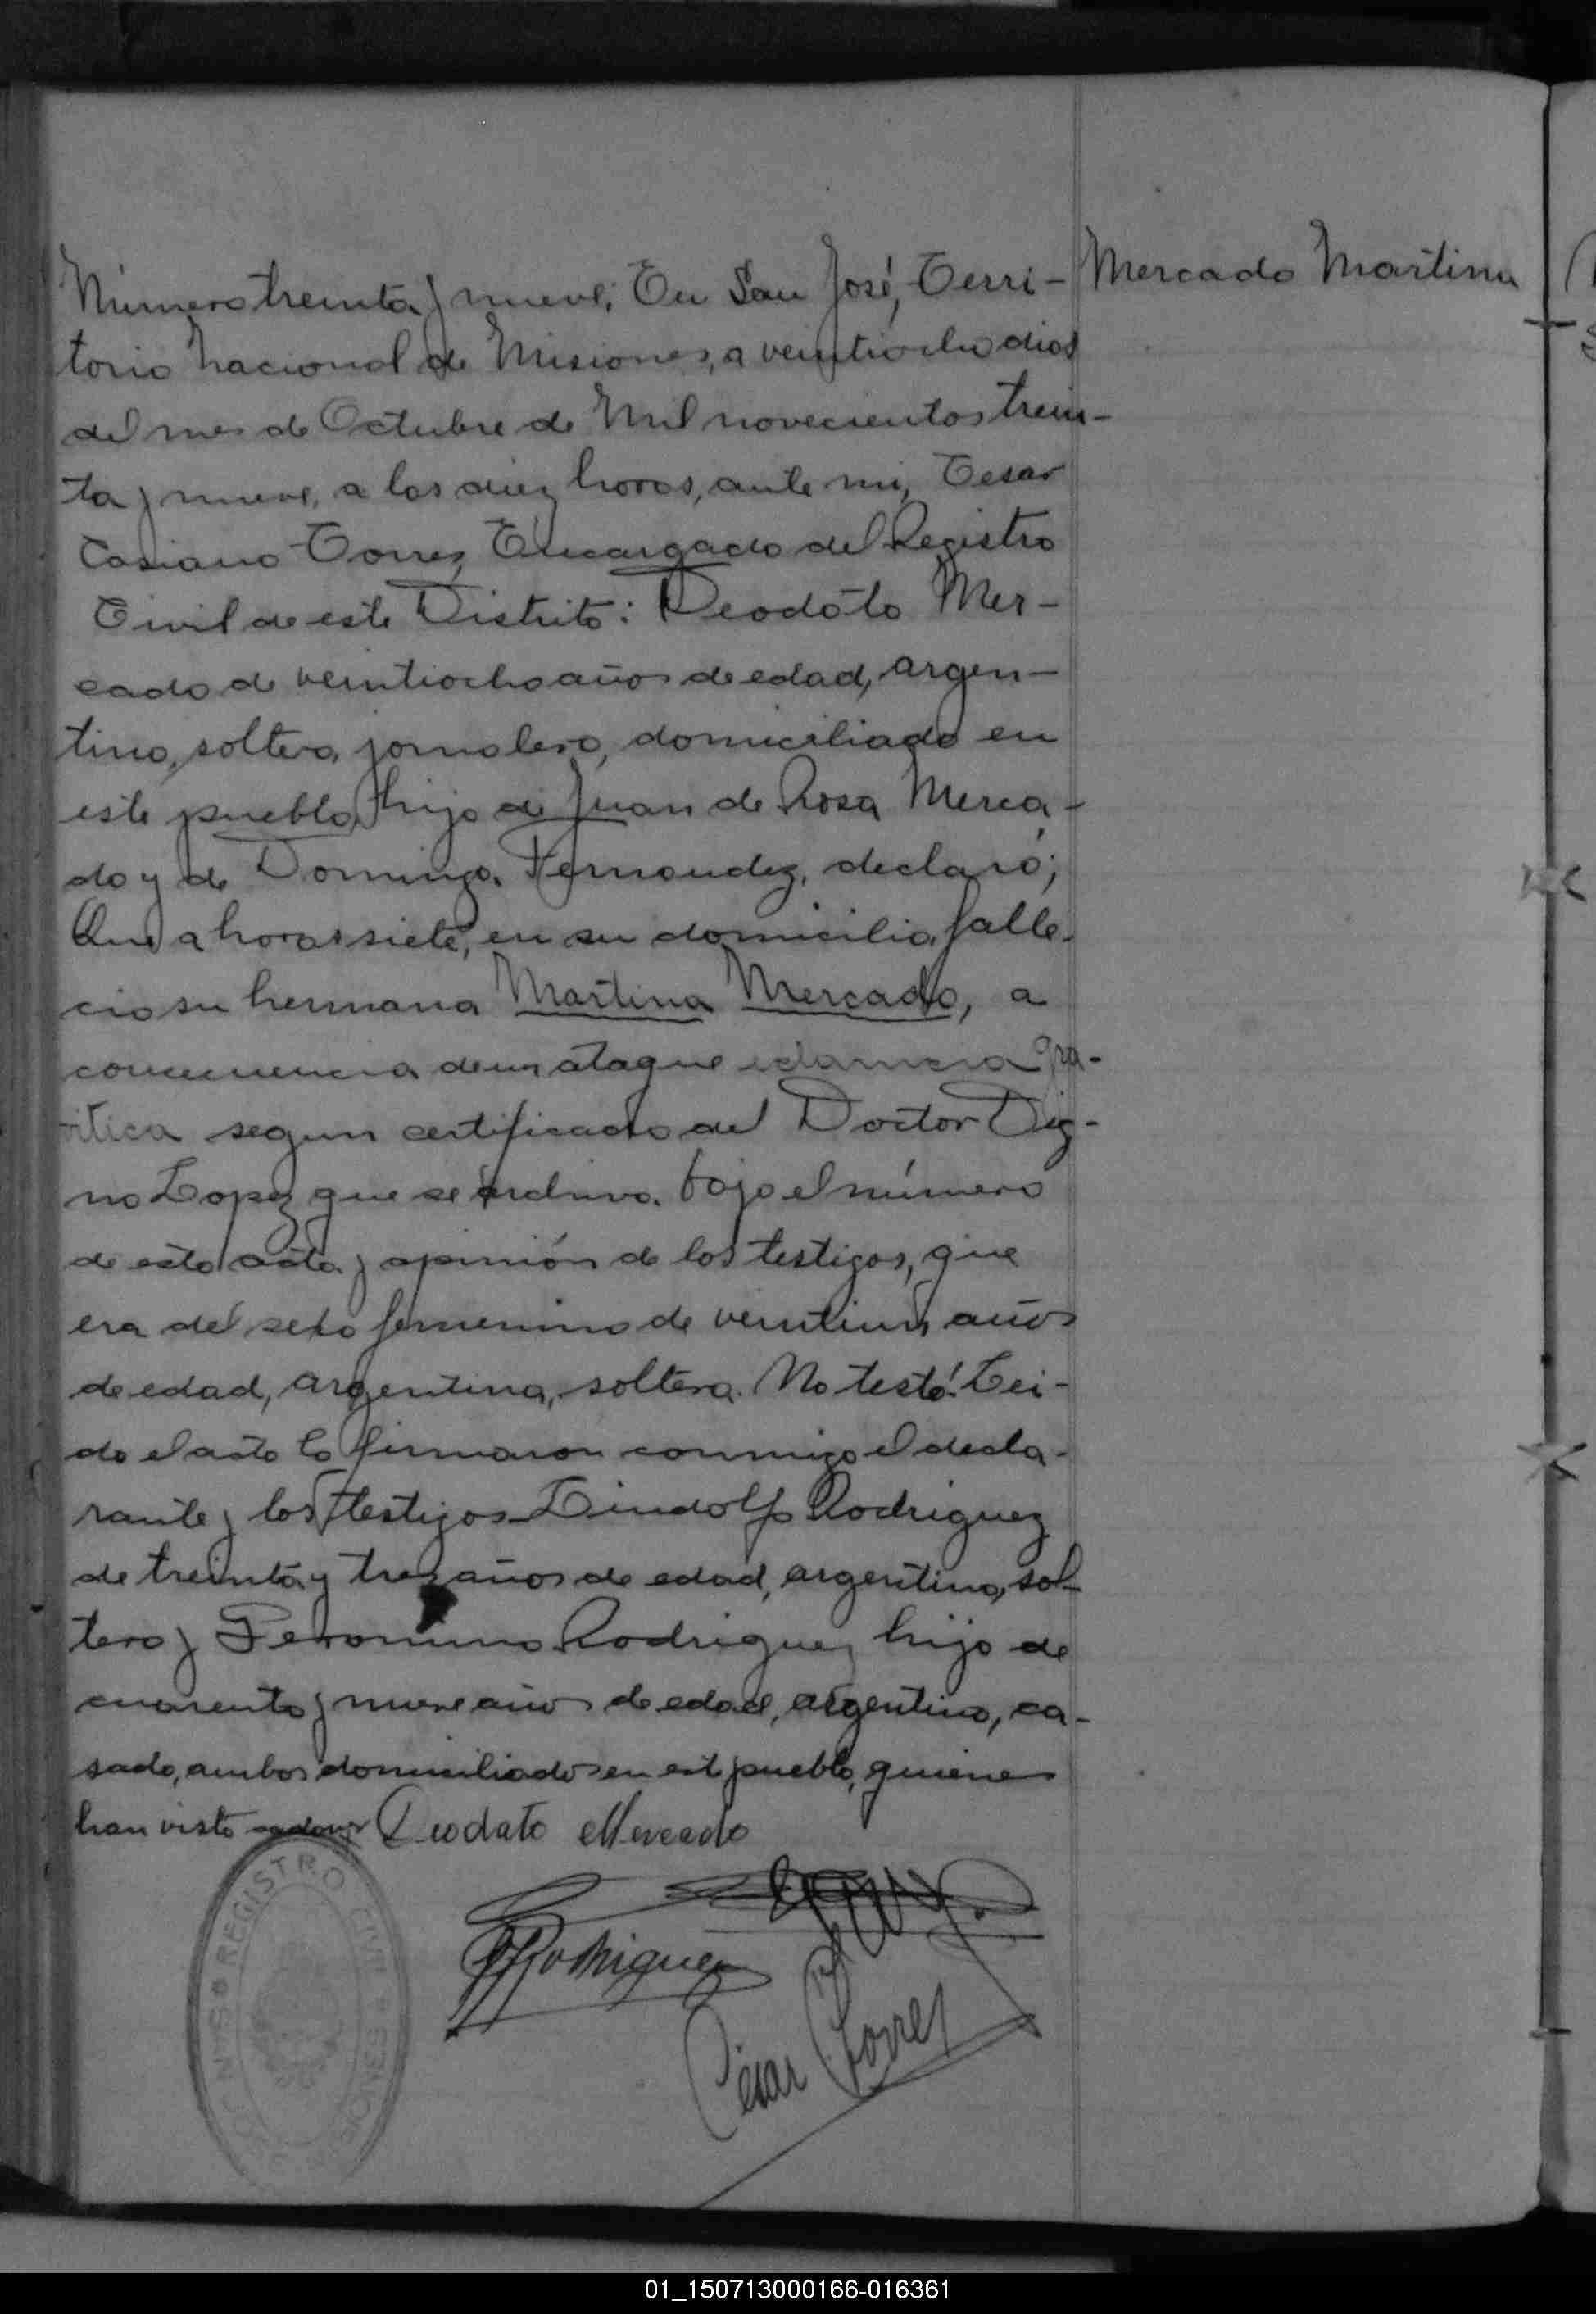 Mercado Martina
Número treinta y nueve; En San José, Terri-
torio Nacional de Misiones, a veintiocho dias
del mes de Octubre de Mil novecientos trein-
ta y nueve, a las diez horas, ante mi, Cesar
Casiano Torres, Encargado del Registro
Civil de este Distrito: Deodato Mer-
cado de veintiocho años de edad, argen-
tino, soltero, jornalero, domiciliado en
este pueblo, hijo de Juan de Rosa Merca-
do y de Dominga Fernandez, declaró;
Que a horas siete, en su domicilio, falle-
cio su hermana Martina Mercado, a
de un ataque
segun certificado del Doctor Dig-
no Lopez que se archiva bajo el número
de esta acta y opinión de los testigos, que
era del sexo femenino de veintiun años
de edad, argentina, soltera. No testó. Lei-
do el acta lo firmaron conmigo el decla-
rante y los testigos Lindolfo Rodriguez
de treinta y tres años de edad, argentino, sol-
tero y Geronimo Rodriguez hijo de
cuarenta y nueve años de edad, argentino, ca-
sado, ambos domiciliados en este pueblo, quienes
han visto cadaver Deodato Mercado
Rodriguez
Cesar Torres
REGISTRO CIVIL
MISIONES
01_150713000166-016361